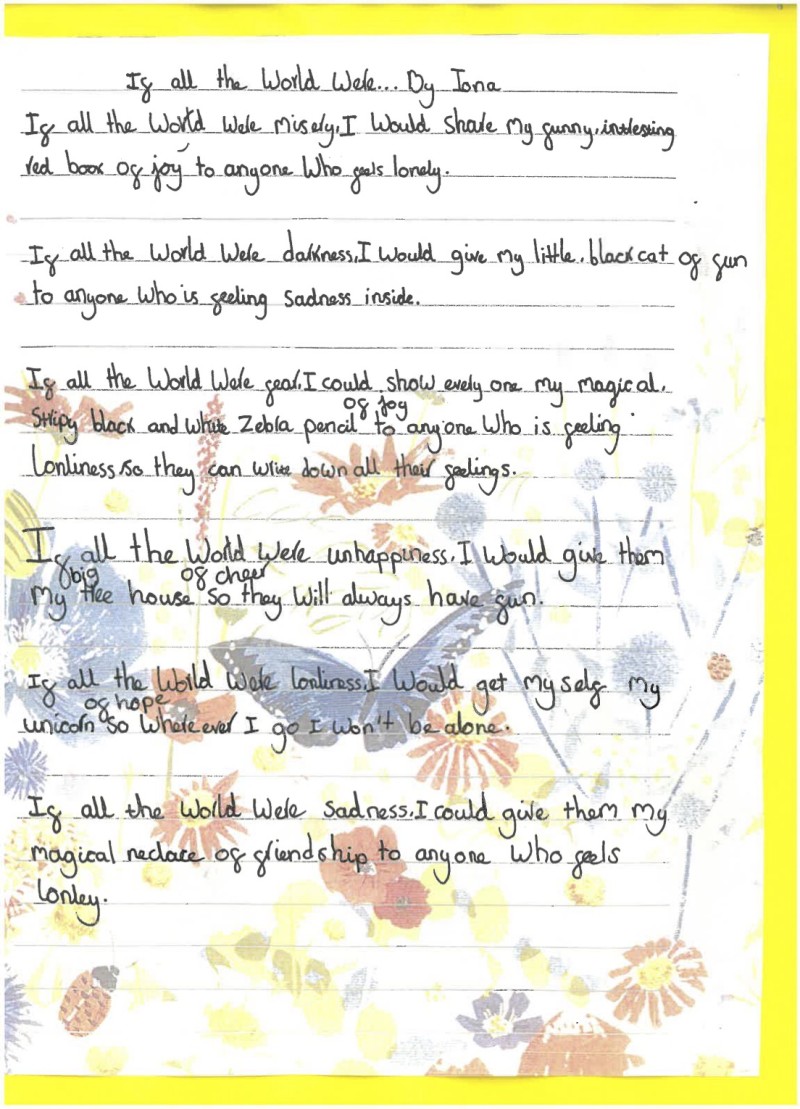 If all the World Were... By Iona
If all the World Were misery, I Would share my funny, intresting
red boox of joy to anyone Who feels lonely.
If all the World Were darkness, I Would give my little, black cat of fun
to anyone Who is feeling sadness inside.
If all the World Were fear, I could show every one my magical,
Stripy black and white Zebra pencil of joy to anyone Who is feeling
Lonliness, so they can write down all their feelings.
If all the World Were unhappiness, I Would give them
my big tree house of cheer so they Will always have fun.
If all the World Were lonliness, I Would get my self my
unicorn of hope so Where ever I go I won't be alone.
If all the World Were Sadness, I could give them my
magical neclace of friendship to anyone Who feels
Lonley.